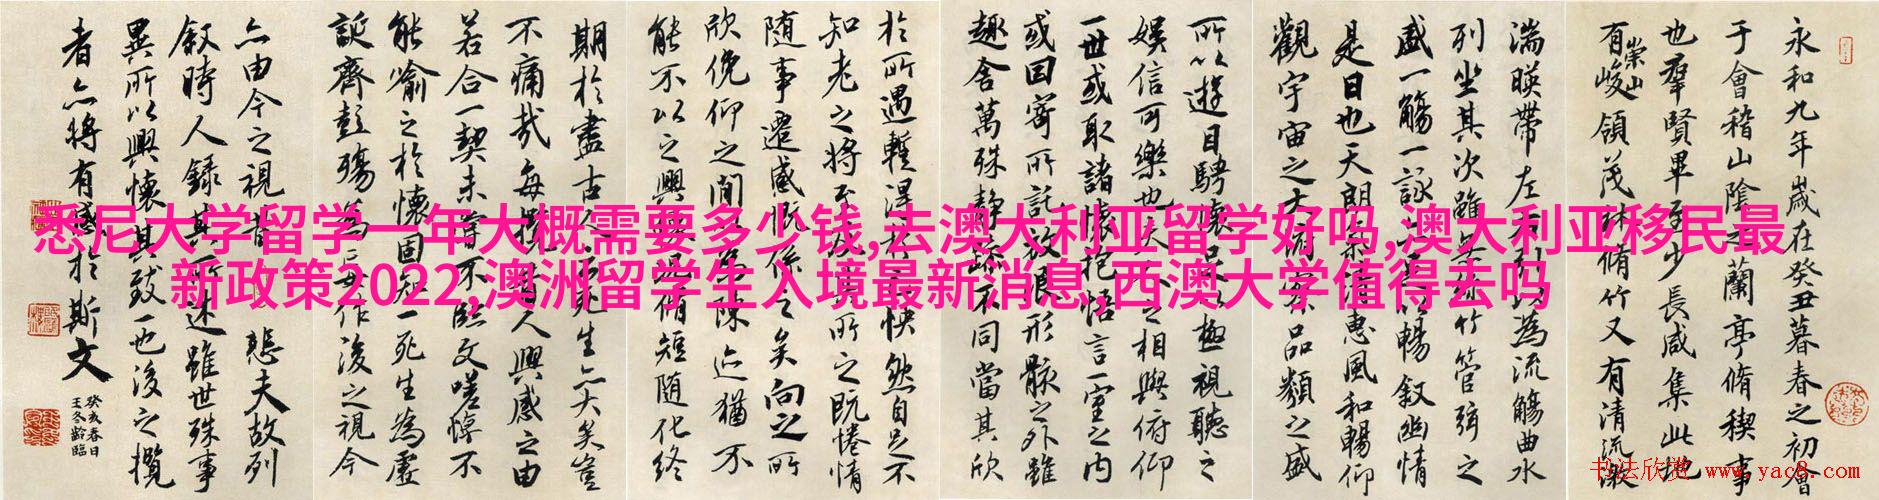 永和九年歲在癸丑暮春之初會
于會稽山陰之蘭亭脩稧事
也羣賢畢至少長咸集此地
有崇山峻領茂林脩竹又有清流激
湍暎帶左右引以為流觴曲水
列坐其次雖無絲竹管弦之
盛一觴一詠亦足以暢叙幽情
是日也天朗氣清惠風和暢仰
觀宇宙之大俯察品類之盛
所以遊目騁懷足以極視聽之
娛信可樂也夫人之相與俯仰
一世或取諸懷抱悟言一室之內
或因寄所託放浪形骸之外雖
趣舍萬殊靜躁不同當其欣
於所遇蹔得於己怏然自足不
知老之將至及其所之既惓情
隨事遷感慨係之矣向之所
欣俛仰之間以為陳迹猶不
能不以之興懷況脩短隨化終
期於盡古人云死生亦大矣豈
不痛哉每攬昔人興感之由
若合一契未嘗不臨文嗟悼不
能喻之於懷固知一死生為虛
誕齊彭殤為妄作後之視今
亦由今之視昔悲夫故列
敘時人錄其所述雖世殊事
異所以興懷其致一也後之攬
者亦將有感於斯文
癸亥春日
王冬齡臨
悉尼大学留学一年大概需要多少钱,去澳大利亚留学好吗,澳大利亚移民最
新政策2022,澳洲留学生入境最新消息,西澳大学值得去吗
书法欣赏 www.yac8.com